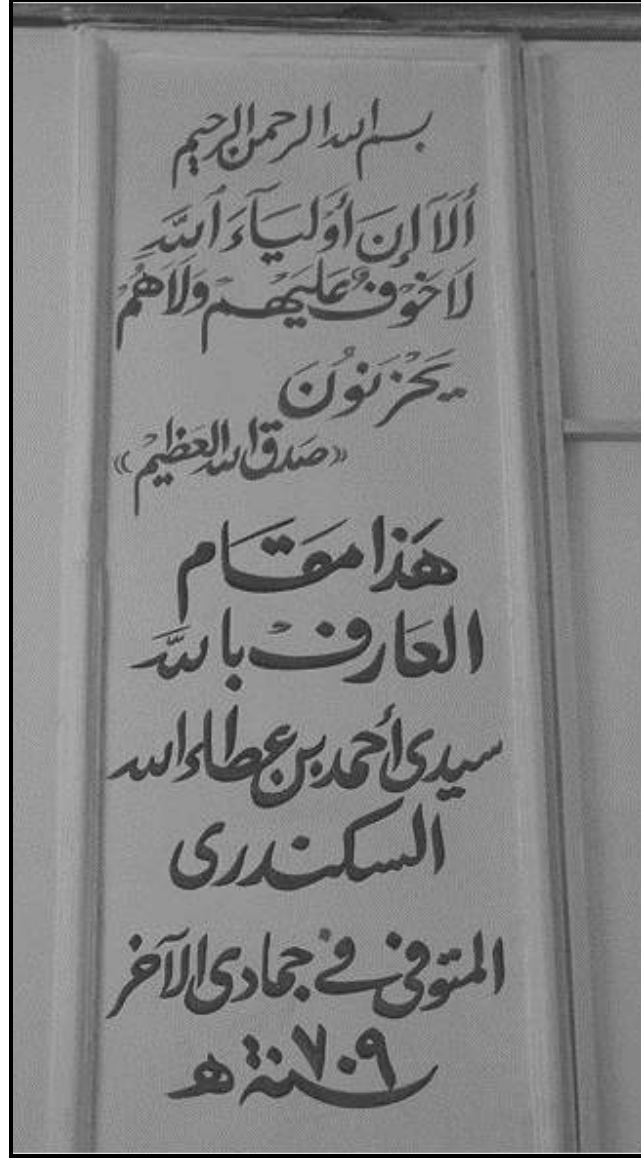 بسم الله الرحمن الرحيم
أَلَآ إِنَ أَوْلِيَآءَ ٱللَّهِ
لَا خَوْفٌ عَلَيْهِمْ وَلَا هُمْ
يَحْزَنُونَ
«صدق الله العظيم»
هَذا مقَام
العَارف باللَّه
سيدى أحمد بن عطاء الله
السكندرى
المتوفى في جمادى الآخر
سنة ٧٠٩ ه